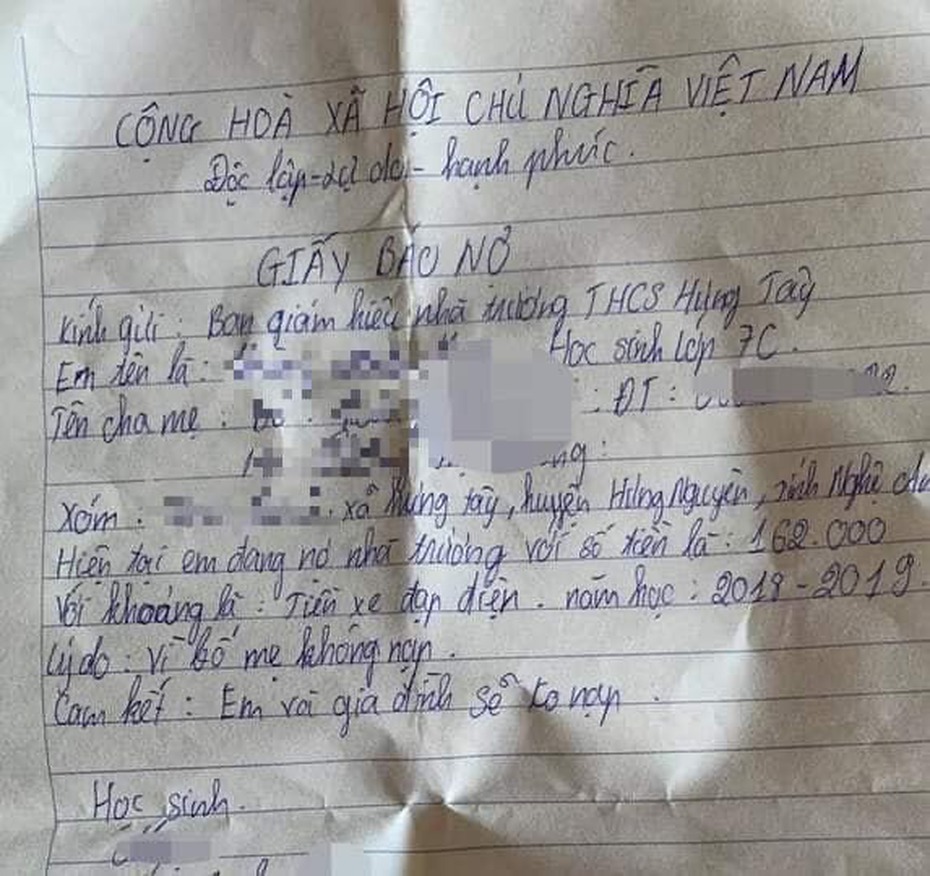 CỘNG HOÀ XÃ HỘI CHỦ NGHĨA VIỆT NAM
Độc lập-tự do - hạnh phúc.
GIẤY BÁO NỞ
Kính gửi : Ban giám hiệu nhà trường THCS Hưng Tây
Em tên là : Học sinh lớp 7C.
Tên cha mẹ : : ĐT :
Xóm : xã Hưng tây, huyện Hưng Nguyên, tỉnh Nghệ
Hiện tại em đang nở nhà trường với số tiền là : 162.000
Với khoảng là : Tiền xe đạp điện . năm học : 2018-2019.
Lý do : Vì bố mẹ không nạp .
Cam kết : Em và gia đình sẽ ko nạp .
Học sinh.